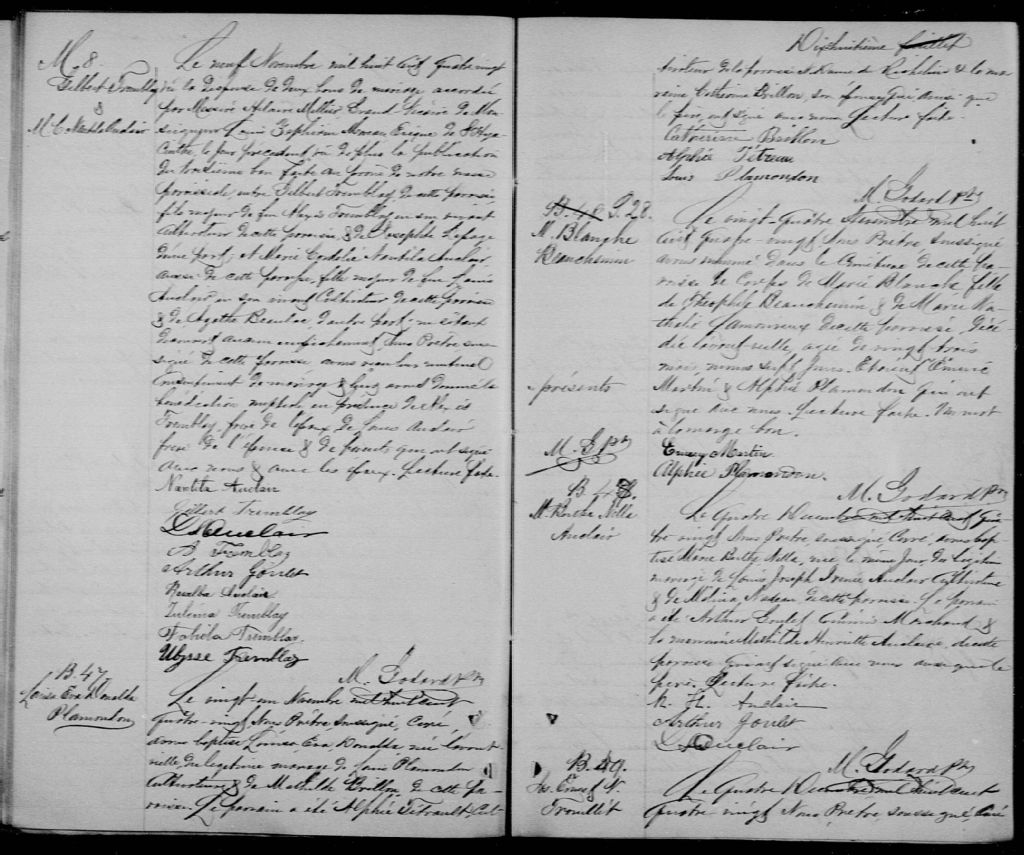 M. 8.
Gilbert Tremblay
&
M. C. Nantile Auclair
Le neuf Novembre mil huit cent quatre vingt
vu la dispense de deux bans de mariage accordée
par Messire Alain Grand Vicaire de Mon
seigneur Louis Zephirin Moreau Evêque de St Hya
cinthe, le jour precedent, vu de plus la publication
du troisième ban faite au prone de notre messe
paroissiale, entre Gilbert Tremblay de cette paroisse
fils majeur de feu Alexis Tremblay en son vivant
cultivateur de cette paroisse, & de Josephte Lepage
d'une part; et Marie Cordelie Nantile Auclair
aussi de cette paroisse, fille majeur de feu Louis
Auclair en son vivant Cultivateur de cette paroisse
& de Agathe Beaulac d'autre part;
aucun empêchement, Nous Prêtre sous
signé de cette paroisse avons reçu leur mutuel
consentement de mariage & leur avons donné la
bénédiction nuptiale en présence de
Tremblay, frère de l'époux de Louis Auclair
frère de l'épouse & de parents qui ont signé
avec nous & avec les époux. Lecture faite.
Nantile Auclair
Gilbert Tremblay
L. Auclair
A. Tremblay
Arthur Goulet
Rosalba Auclair
Zulema Tremblay
Fabiola Tremblay
Ulysse Tremblay
M. Godard Ptre
B. 47
Louise Eva Donalda
Plamondon
Le vingt un Novembre mil huit cent
quatre-vingt Nous Prêtre, soussigné, Curé,
avons baptisé Louise Eva, Donalda, née l'avant
veille, du legitime mariage de Louis Plamondon
cultivateur & de Mathilde Brillon, de cette pa
roisse. Le parrain a été Alphée Tétrault, Cul
Dixhuitième feuillet
tivateur de la paroisse N. Dame de Richelieu & la mar
raine Catherine Brillon, son épouse, qui ainsi que
le père, ont signé avec nous. Lecture faite.
Catherine Brillon
Alphée Tétreau
Louis Plamondon
M. Godard Ptre
B. 48 S. 28.
M. Blanche
Beauchemin
Le vingt-quatre Novembre mil huit
cent quatre-vingt Nous Prêtre soussigné
avons inhumé dans le Cimetière de cette pa
roisse le corps de Marie Blanche fille
de Théophile Beauchemin & de Marie Ma
thilde Lamoureux de cette paroisse, décé
dée l'avant-veille, agée de vingt trois
mois, moins sept jours. Etaient Emeri
présents
Martin & Alphée Plamondon qui ont
signé avec nous. Lecture faite. Un mot
à la marge bon.
M. G. Ptre
Emery Martin
Alphée Plamondon.
M. Godard Ptre
B. 48.
M. Berthe Nilla
Auclair
Le quatre Decembre mil huit cent qua
tre vingt Nous Prêtre, soussigné, Curé, avons bap
tisé Marie Berthe Nilla, née le même jour du legitime
mariage de Louis Joseph Irenée Auclair Cultivateur
& de Melina Nadeau de cette paroisse. Le parrain
a été Arthur Goulet Commis Marchand &
la marraine Mathilde Henriette Auclair, de cette
paroisse qui ont signé avec nous ainsi que le
père. Lecture faite.
M. H. Auclair
Arthur Goulet
L. Auclair
M. Godard Ptre
B. 49.
Jos. Ernest N.
Frouillet
Le quatre Decembre mil huit cent
quatre-vingt Nous Prêtre, soussigné, Curé